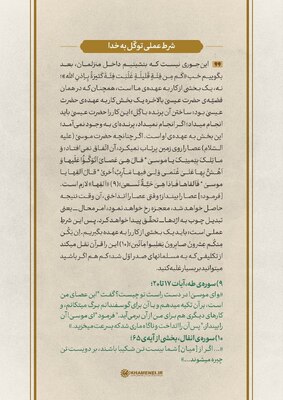 شرط عملی توکّل به خدا
این‌جوری نیست که بنشینیم داخل منزلمان، بعد
بگوییم خب «کَم مِن فِئَةٍ قَلیلَةٍ غَلَبَت فِئَةً کَثیرَةً بِاِذنِ الله»؛
نه، یک بخشی از کار به عهده‌ی ما است، همچنان که در همان
قضیّه‌ی حضرت عیسیٰ بالاخره یک بخش کار به عهده‌ی حضرت
عیسیٰ بود؛ ساختن آن پرنده با گِل؛ این کار را حضرت عیسیٰ باید
انجام میداد؛ اگر انجام نمیداد، پرنده‌ای به وجود نمی‌آمد؛
این بخش به عهده‌ی او است. اگر چنانچه حضرت موسیٰ (علیه
السّلام) عصا را روی زمین پرتاب نمیکرد، آن اتّفاق نمی‌افتاد؛ وَ
ما تِلکَ بِیَمینِکَ یا موسىٰ * قالَ هِیَ عَصایَ اَتَوَکَّؤُا عَلَیها وَ
اَهُشُّ بِها عَلىٰ غَنَمی وَ لِیَ فیها مَآرِبُ اُخرىٰ * قالَ اَلقِها یا
موسىٰ * فَاَلقاها فَاِذا هِیَ حَیَّةٌ تَسعىٰ؛(۹) «اَلقِها» لازم است.
[فرمود:] عصا را بینداز؛ وقتی عصا را انداختی، آن وقت نتیجه
حاصل خواهد شد، معجزه رخ خواهد نمود، امر محال ــ یعنی
تبدیل چوب به اژدها ــ تحقّق پیدا خواهد کرد. پس این شرط
عملی است؛ باید یک بخشی از کار را به عهده بگیریم. اِن یَکُن
مِنکُم عِشرونَ صابِرونَ یَغلِبوا مِائَتَین؛(۱۰) این را قرآن نقل میکند
از تکلیفی که به مسلمانهای صدر اوّل شد؛ کم هم اگر باشید
میتوانید بر بسیار غلبه کنید.
۹) سوره‌ی طه، آیات ۱۷ تا ۲۰؛
«و ای موسیٰ! در دست راست تو چیست؟ گفت: "این عصای من
است، بر آن تکیه میدهم و با آن برای گوسفندانم برگ میتکانم، و
کارهای دیگری هم برای من از آن برمی‌آید." فرمود: "ای موسیٰ! آن
را بینداز." پس آن را انداخت و ناگاه ماری شد که بسرعت میخزید.»
۱۰) سوره‌ی انفال، بخشی از آیه‌ی ۶۵؛
«... اگر از [میان] شما بیست تن شکیبا باشند، بر دویست تن
چیره میشوند...»
KHAMENEI.IR